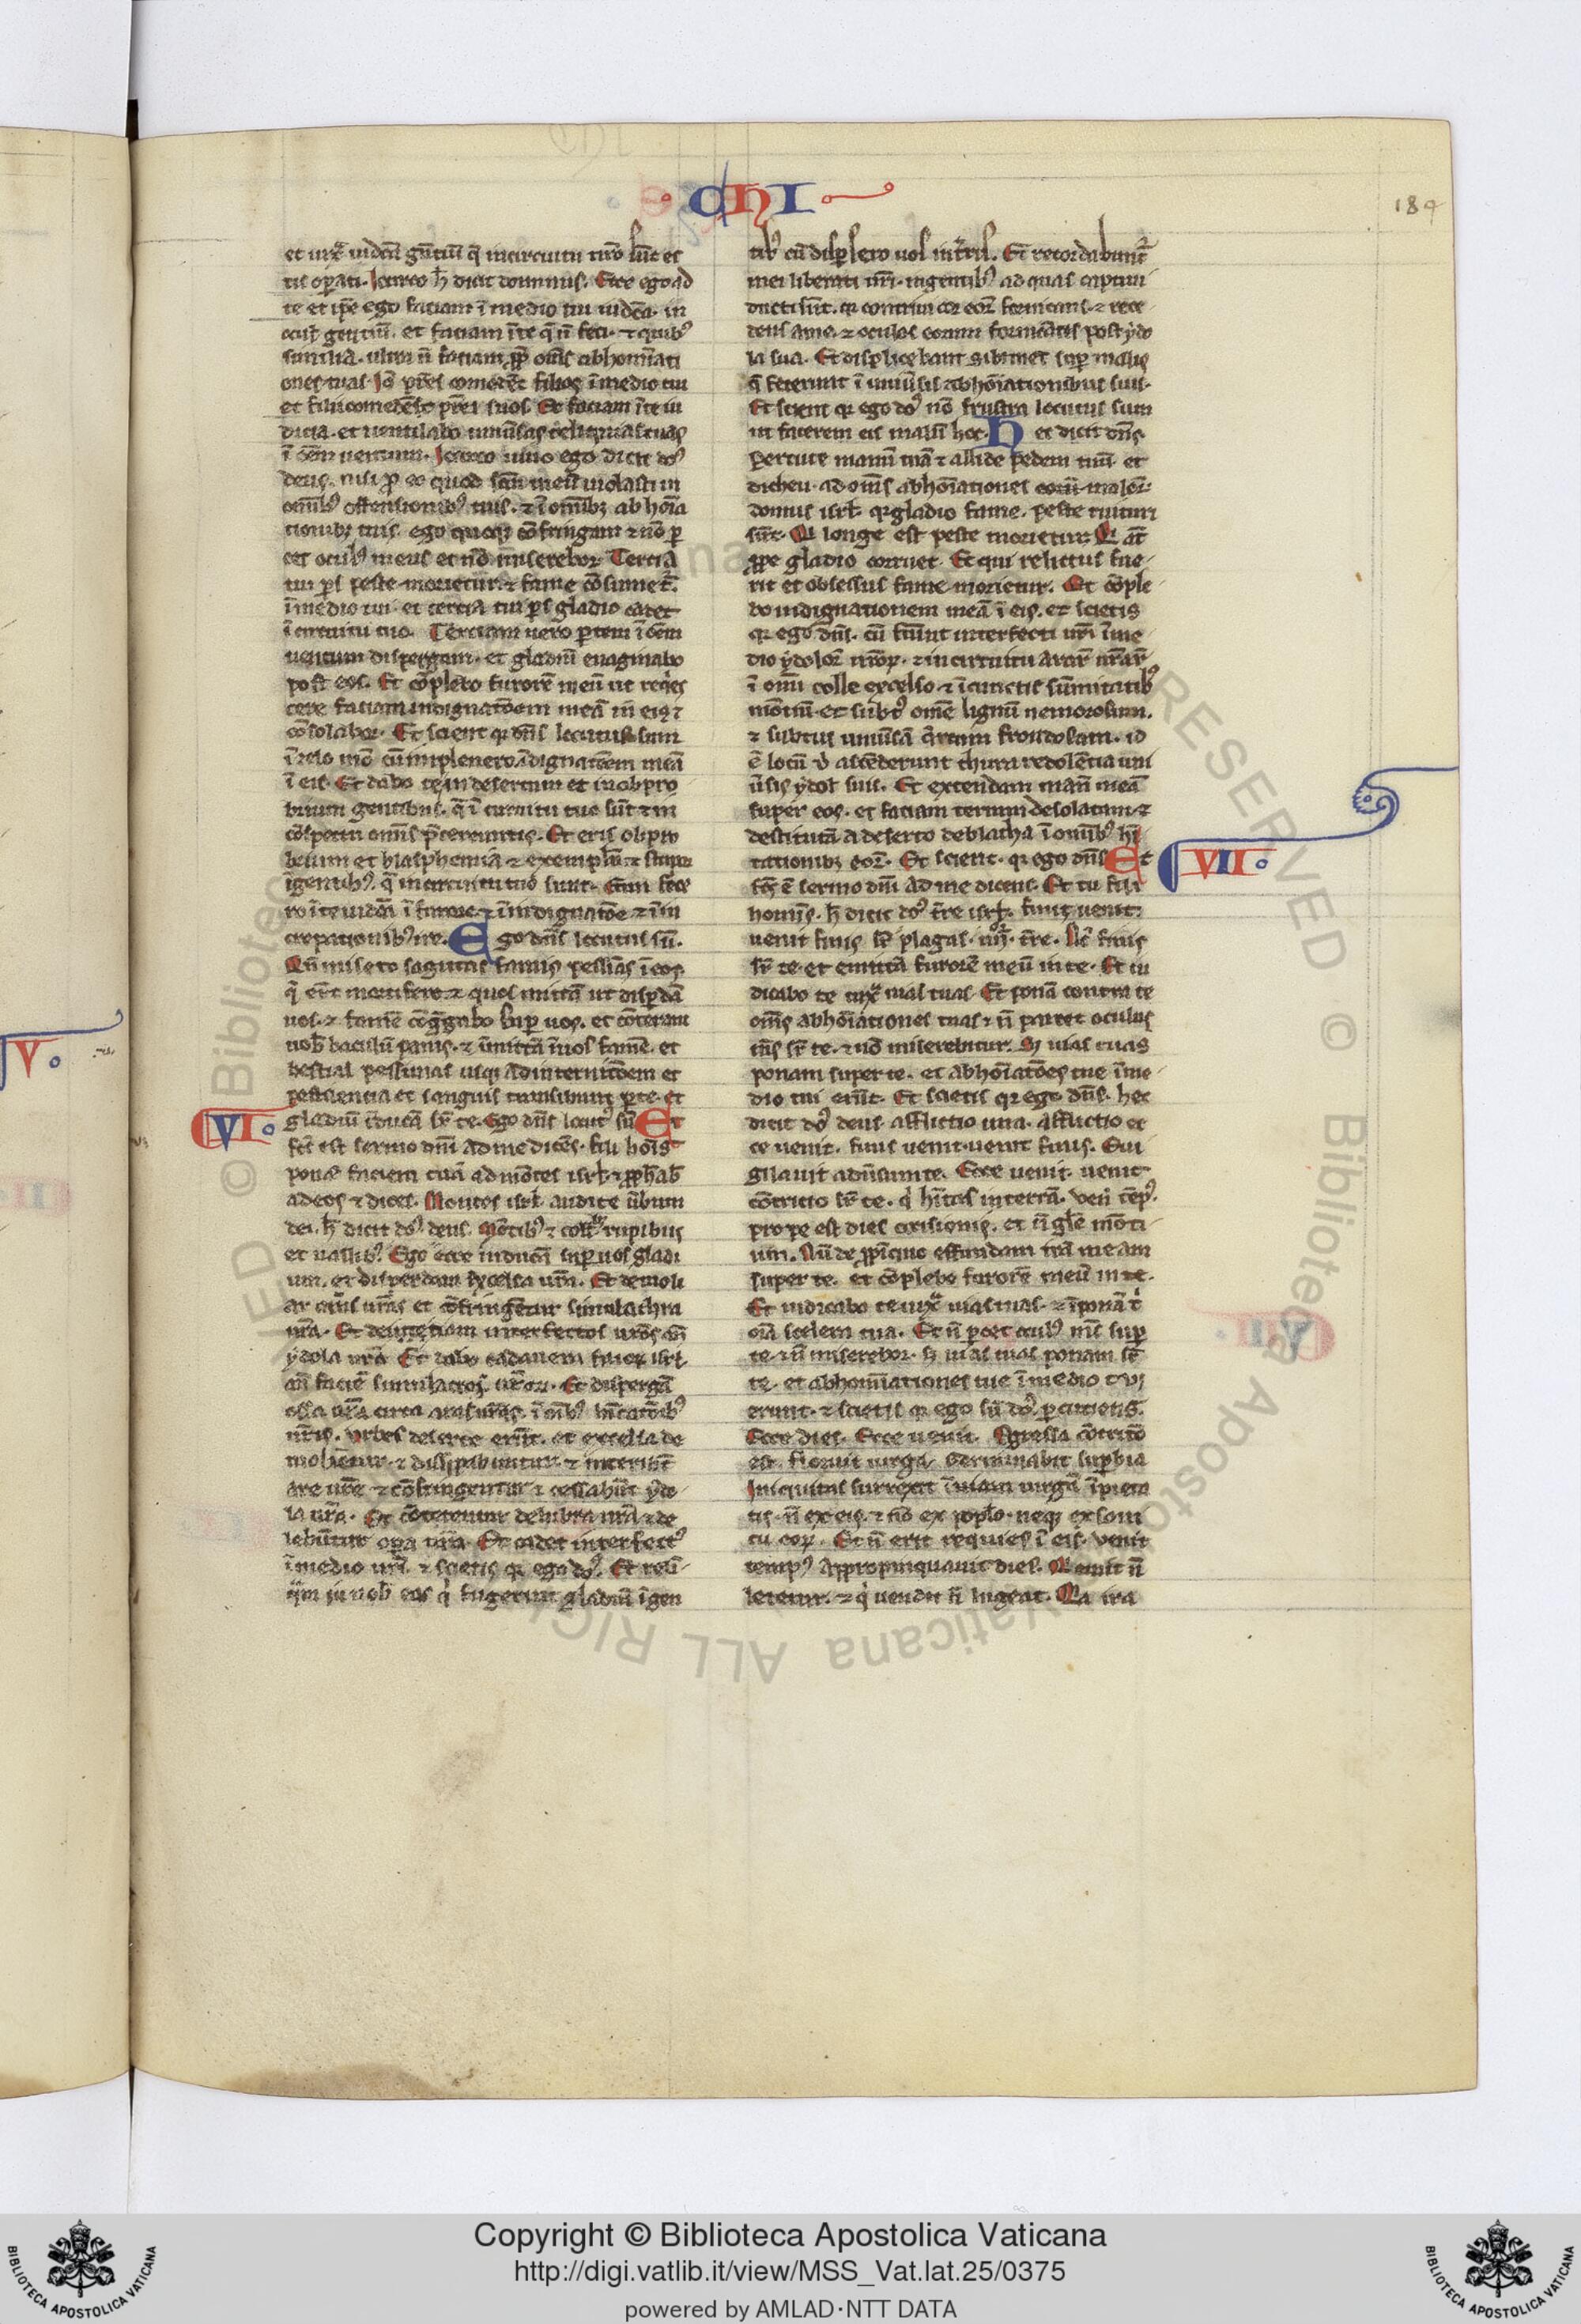 · CHI ·
184
et iux̄ iudicā gentiū q̄ in circuitu ur̄o sūt et
tis op̄ati. Idcirco h̄ dicit dominus. Ecce ego ad
te et ip̄e ego faciam ī medio tui iudicia. in
oculis gentiū. et faciam īte q̄ n̄ feci. ⁊ quib⁹
similia. ultra n̄ faciam p̄p̄ om̄s abhominati
ones tuas. Iō pr̄es comedēt filios ī medio tui
et filii comedēt pr̄es suos. Et faciam īte iu
dicia. et uentilabo uniūsas reliquias tuas
ī oēm uentum. Idcirco uiuo ego dicit dō⁹
deus. nisi p̄ eo quod sc̄m meū uiolasti in
omīb⁹ offensionib⁹ tuis. ⁊ ī omībꝫ abhoīa
tionibꝫ tuis. ego quoqꝫ cōfringam ⁊ nō p̄
cet ocul⁹ meus et nō miserebor. Tercia
tui ps̄ peste morietur. ⁊ fame cōsumet̄.
ī medio tui. et tercia tui ps̄ gladio cadet
ī circuitu tuo. Terciam uero p̄tem ī oēm
uentum dispergam. et gladiū euaginabo
post eos. Et cōplebo furorē meū ut reqes
cere faciam indignatōem meā in eis ⁊
cōsolabor. Et scient qꝛ dn̄s locutus sum
ī zelo meo cū impleuero īdignatōem meā
ī eis. Et dabo te in desertum et in obpro
brium gentibus. q̄ ī circuitu tuo sūt ⁊ in
cōspectu omīs p̄tereuntis. Et eris obpro
brium et blasphemia ⁊ exemplū ⁊ stupor
ī gentib⁹. q̄ in circuitu tuo sunt. Cum fece
ro īte iudicia ī furore ⁊ ī indignatōe ⁊ ī in
crepationib⁹ ire. Ego dn̄s locutus sū.
Qn̄ misero sagittas famis pessimas ī eos.
q̄ erūt mortifere ⁊ quas mittā ut disp̄dā
uos. ⁊ famē cōgregabo sup̄ uos. et cōteram
uob̄ baculū panis. ⁊ īmittā ī uos famē. et
bestias pessimas usqꝫ ad internitiōem et
pestilentia et sanguis transibunt p̄ te. et
gladiū īducā sr̄ te. Ego dn̄s locut⁹ sū. Et
VI
fc̄m est sermo dn̄i ad me dicēs. fili hoīs
pone faciem tuā ad mōtes isrl̄. ⁊ p̄phab̄
ad eos ⁊ dices. Montes isrl̄ audite ūbum
dei. h̄ dicit dō⁹ deus. Mōtib⁹ ⁊ collib⁹ rupibus
et uallib⁹. Ego ecce inducā sup̄ uos gladi
um. et disperdam excelsa ur̄a. Et demoli
ar aras ur̄as et cōfringētur simulachra
ur̄a. Et deiciam interfectos ur̄os an̄
ydola ur̄a. Et dabo cadauera filiorꝫ isrl̄
an̄ faciē simulacrorꝫ ur̄orꝫ. Et dispergā
ossa ur̄a circa aras ur̄as. ī omīb⁹ hītatōib⁹
ur̄is. Vrbes deserte erūt. et excelsa de
molientur ⁊ dissipabuntur ⁊ interibūt
are ur̄e ⁊ cōfringentur ⁊ cessabūt ydo
la ur̄a. Et cōterentur delubra ur̄a ⁊ de
lebūtur opa ur̄a. Et cadet interfect⁹
ī medio ur̄i. ⁊ scietis qꝛ ego dō⁹. Et reli
qm̄ in uob̄ eos q̇ fugerint gladiū ī gen
tib⁹ cū disp̄sero uos in t̄ris. Et recordabunt̄
mei liberati ur̄i. in gentib⁹ ad quas captiui
ducti sūt. qꝛ contriui cor eorꝫ fornicans. ⁊ rece
dens a me. ⁊ oculos eorum fornicātes post ydo
la sua. Et displicebunt sibimet sup̄ malis
q̄ fecerunt ī uniūsis abhoīationibus suis.
Et scient qꝛ ego dō⁹ nō frustra locutus sum
ut facerem eis malū hoc. Hec dicit dn̄s.
Percute manū tuā ⁊ allide pedem tuū. et
dic heu. ad om̄s abhoīationes eorū malorꝫ
domus isrl̄. qꝛ gladio fame. peste ruituri
sūt. Qui longe est peste morietur. Qui aūt
p̄pe gladio corruet. Et qui relictus fue
rit et obsessus fame morietur. Et cōple
bo indignationem meā ī eis. et scietis
qꝛ ego dn̄s. cū fūint interfecti ur̄i ī me
dio ydolorꝫ ur̄orꝫ. ⁊ in circuitu ararꝫ ur̄arꝫ
ī omī colle excelso ⁊ ī cunctis sūmitatib⁹
mōtiū. et subt⁹ omē lignū nemorosum.
⁊ subtus uniūsā q̄rcum frondosam. id
ē locū ubi accēderunt thura redolētia uni
ūsis ydol̄ suis. Et extendam manū meā
super eos. et faciam terram desolatam ⁊
destitutā a deserto deblatha ī omīb⁹ hī
tationibꝫ eorꝫ. Et scient. qꝛ ego dn̄s. Et
VII
fc̄s ē sermo dn̄i ad me dicens. Et tu fili
hominis. h̄ dicit dō⁹ t̄re isrl̄. finis uenit.
uenit finis sr̄ plagas. iiiiᵒʳ. t̄re. Nc̄ finis
sr̄ te. et emittā furorē meū in te. Et iu
dicabo te iux̄ uias tuas. Et ponā contra te
om̄s abhoīationes tuas. ⁊ n̄ parcet oculus
ms̄ sr̄ te. ⁊ nō miserebitur. Sꝫ uias tuas
ponam super te. et abhoīatōes tue ī me
dio tui erūt. Et scietis qꝛ ego dn̄s. hec
dicit dō⁹ deus. Afflictio una. afflictio ec
ce uenit. finis uenit. uenit finis. Eui
gilauit aduersum te. Ecce uenit. uenit
cōtritio sr̄ te. q̇ hītas in terrā. Venit tēp⁹.
prope est dies occisionis. et n̄ gl̄e mōti
um. Nūc de p̄pinquo effundam irā meam
super te. et cōplebo furorē meū in te.
Et iudicabo te iux̄ uias tuas. ⁊ īponā t̄
oīa scelera tua. Et n̄ parcet ocul⁹ ms̄ sup̄
te. ⁊ n̄ miserebor. sꝫ uias tuas ponam sr̄
te. et abhominationes tue ī medio tui
erunt. ⁊ scietis qꝛ ego sū dō⁹ percutiens.
Ecce dies. Ecce uenit. Egressa cōtritio
est. floruit uirga. Germinabit sup̄bia
Iniquitas surrexit ī uiam uirgā īpieta
tis. n̄ ex eis. ⁊ nō ex pop̄lo. neqꝫ ex soni
tu eorꝫ. Et n̄ erit requies ī eis. Venit
temp⁹ appropinquauit dies. Qui emit n̄
letetur. ⁊ q̇ uendit n̄ lugeat. Qa ira
V
Copyright © Biblioteca Apostolica Vaticana
http://digi.vatlib.it/view/MSS_Vat.lat.25/0375
powered by AMLAD·NTT DATA